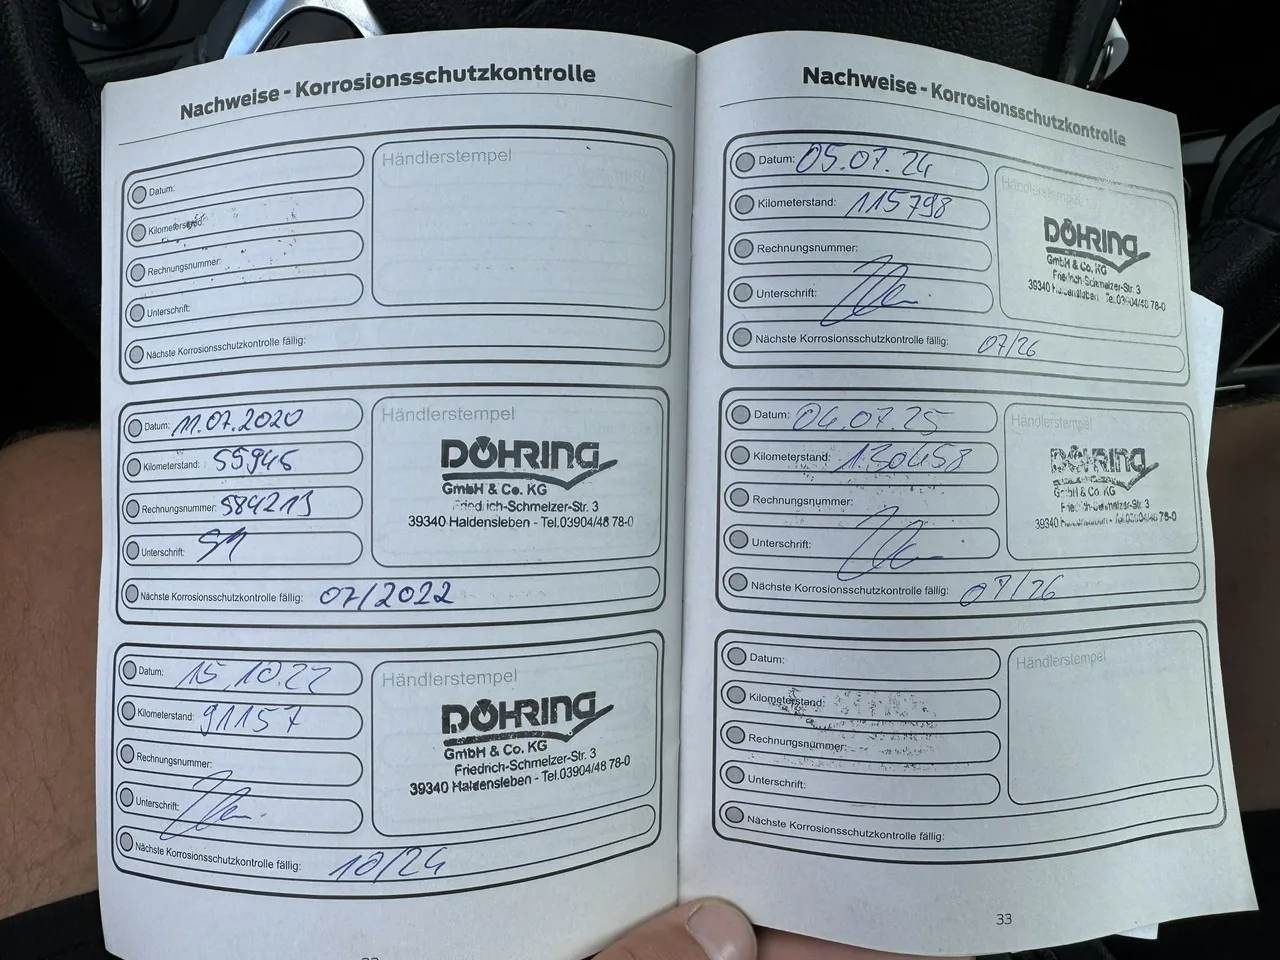 Nachweise - Korrosionsschutzkontrolle
Datum:
Händlerstempel
Kilometerstand:
Rechnungsnummer:
Unterschrift:
Nächste Korrosionsschutzkontrolle fällig:
Datum: 11.07.2020
Händlerstempel
Kilometerstand: 55945
DÖHRING
GmbH & Co. KG
Rechnungsnummer: 584213
Friedrich-Schmelzer-Str. 3
39340 Haldensleben - Tel.03904/48 78-0
Unterschrift:
Nächste Korrosionsschutzkontrolle fällig: 07/2022
Datum: 15.10.22
Händlerstempel
Kilometerstand: 91157
DÖHRING
GmbH & Co. KG
Rechnungsnummer:
Friedrich-Schmelzer-Str. 3
39340 Haldensleben - Tel.03904/48 78-0
Unterschrift:
Nächste Korrosionsschutzkontrolle fällig: 10/24
Nachweise - Korrosionsschutzkontrolle
Datum: 05.07.24
Händlerstempel
Kilometerstand: 115798
DÖHRING
GmbH & Co. KG
Rechnungsnummer:
Friedrich-Schmelzer-Str. 3
39340 Haldensleben - Tel.03904/48 78-0
Unterschrift:
Nächste Korrosionsschutzkontrolle fällig: 07/26
Datum: 04.07.25
Händlerstempel
Kilometerstand: 130458
DÖHRING
GmbH & Co. KG
Rechnungsnummer:
Friedrich-Schmelzer-Str. 3
39340 Haldensleben - Tel.03904/48 78-0
Unterschrift:
Nächste Korrosionsschutzkontrolle fällig: 07/26
Datum:
Händlerstempel
Kilometerstand:
Rechnungsnummer:
Unterschrift:
Nächste Korrosionsschutzkontrolle fällig:
33